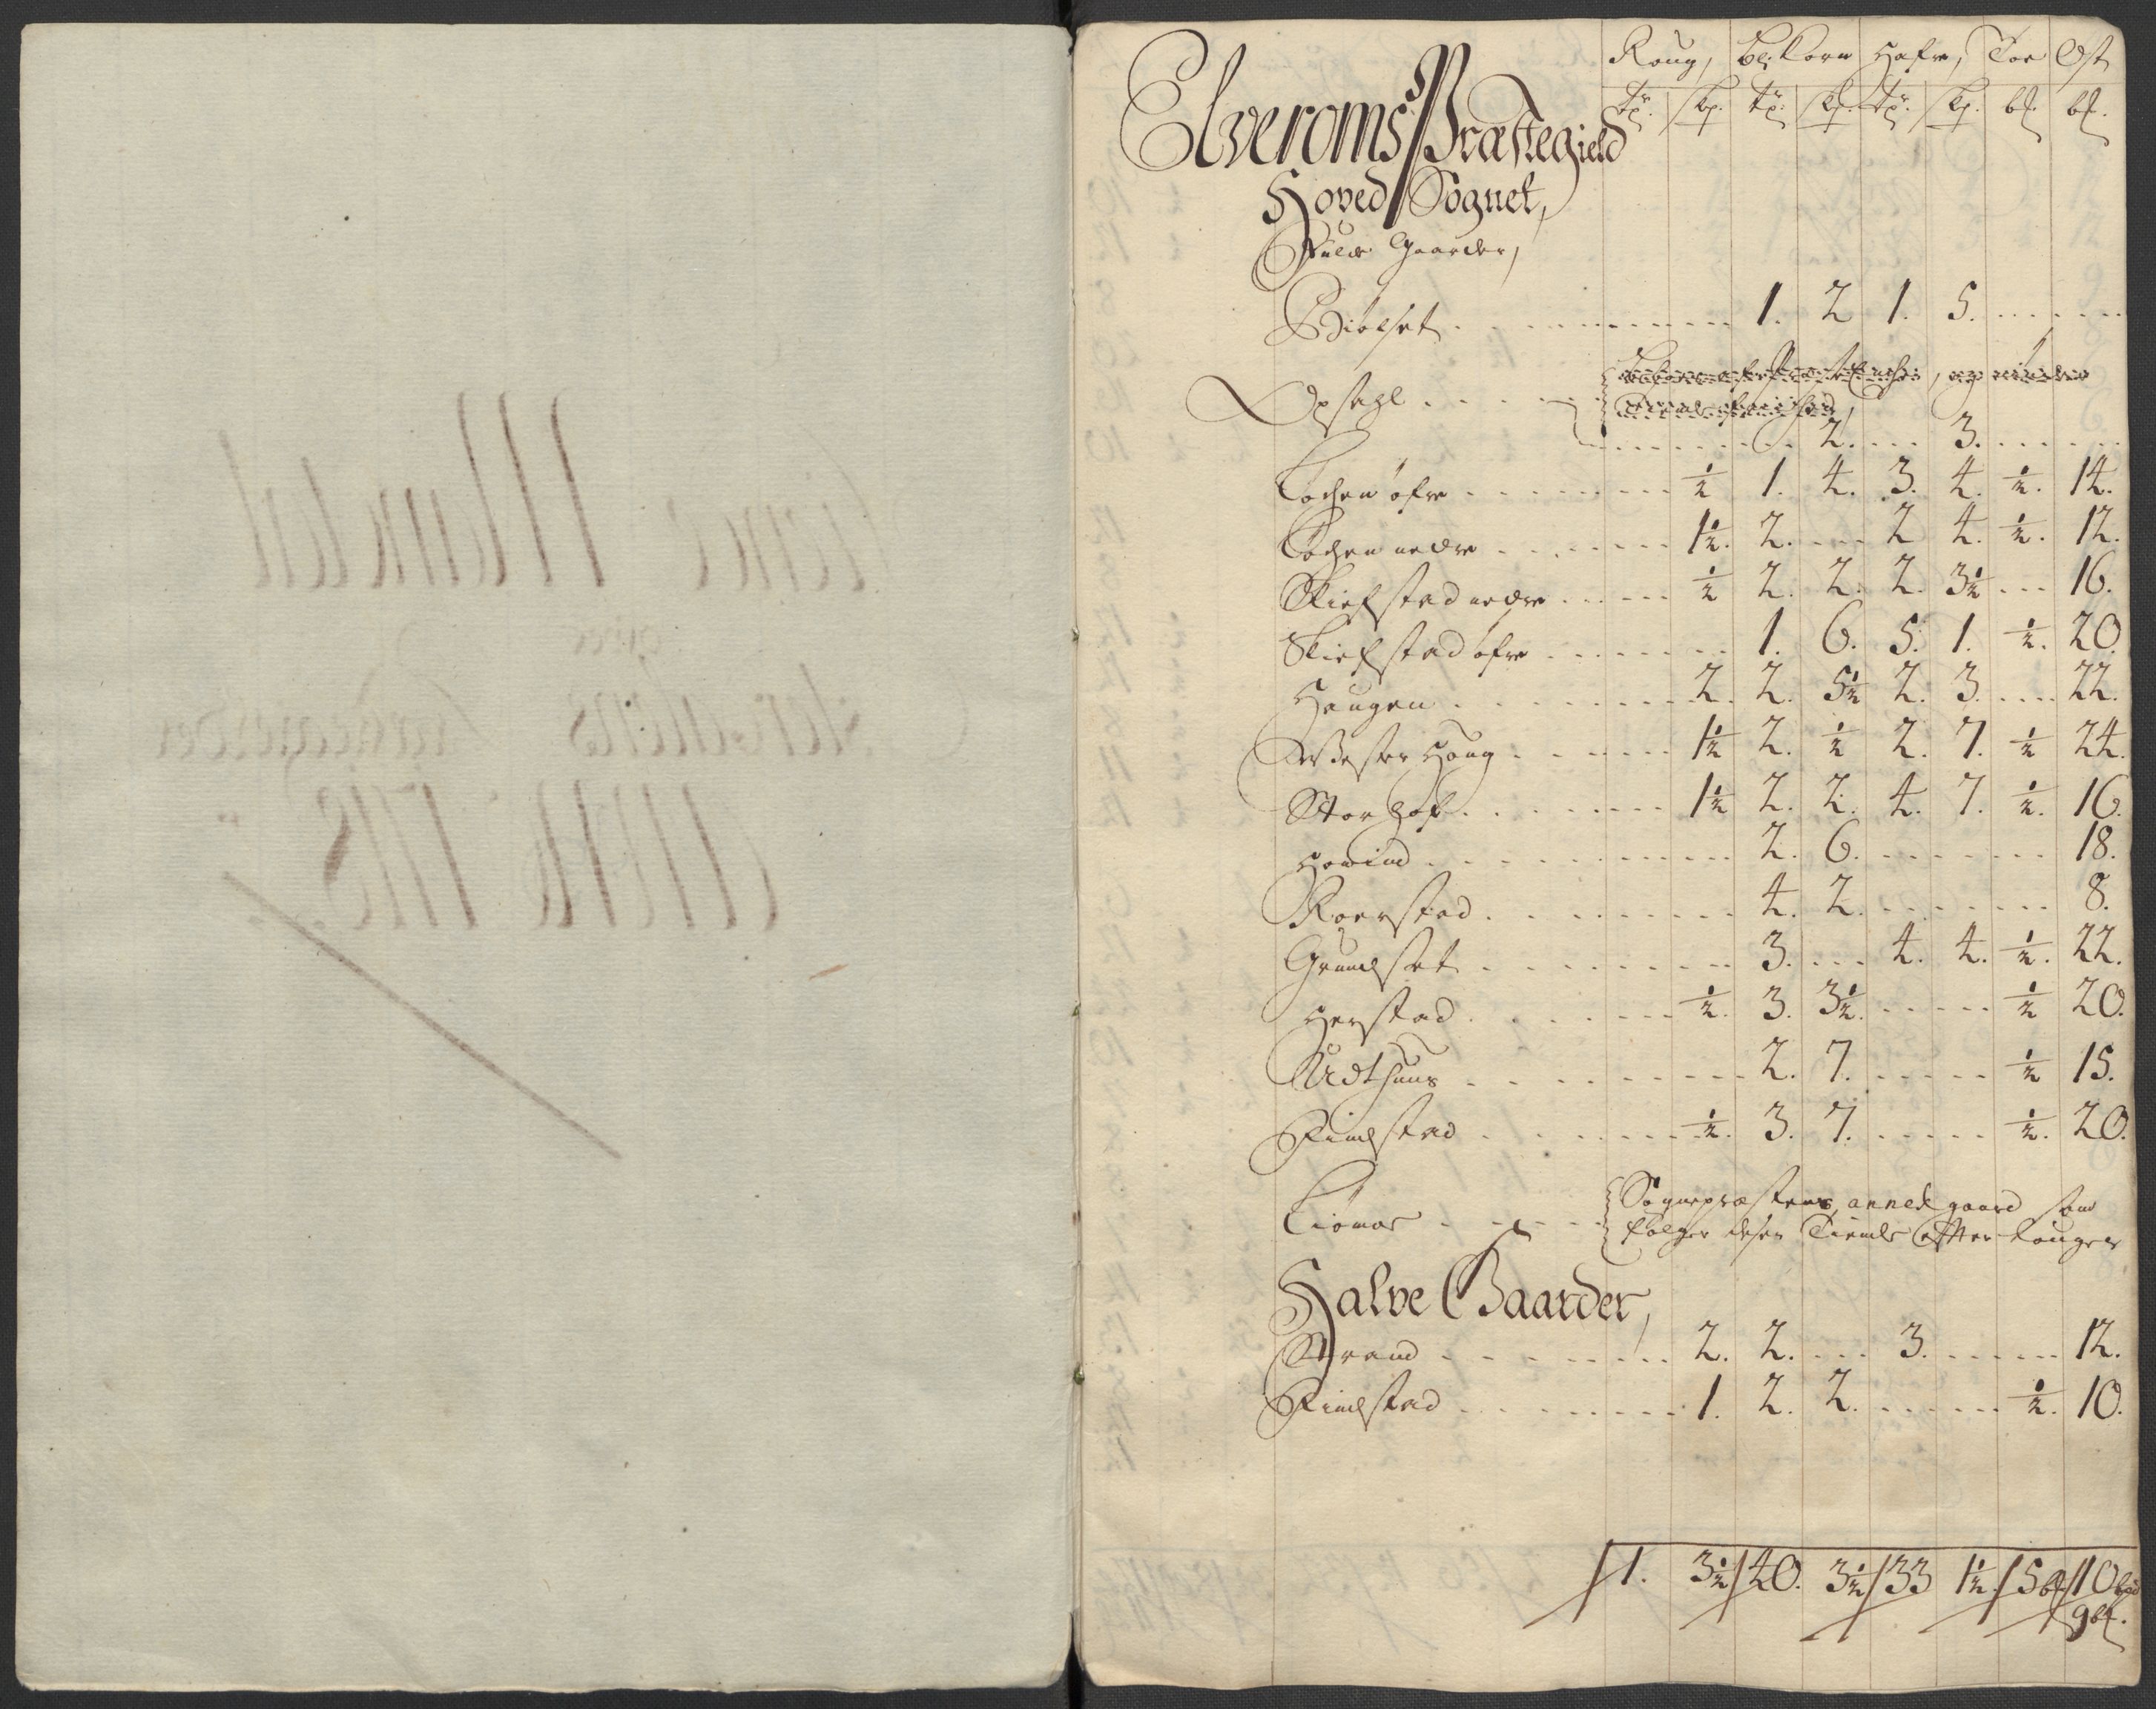 Roug, bl: Korn Hafre, Toe Ost
tr. skp. tr. skp. tr. skp. bl. bl.
Elveroms Præstegield
Hoved Sognet,
Fulde Gaarder,
Biølset 1. 2 1. 5.
Opsahl
2. 3.
Lochen øfre ½ 1. 4. 3. 4. ½. 14.
Lochen nedre 1½. 2. 2 4. ½. 12.
Skiefstad nedre ½ 2. 2. 2. 3½ 16.
Skiefstad øfre 1. 6. 5. 1. ½. 20.
Haugen 2. 2. 5½ 2. 3. 22.
Wester Houg 1½ 2. ½ 2. 7. ½ 24.
Storhof 1½ 2. 2. 4. 7. ½. 16.
Howind 2. 6. 18.
Roerstad 4. 2. 8.
Grundset 3. 4. 4. ½. 22.
Herstad ½. 3. 3½. ½ 20.
Udthuus 2. 7. ½ 15.
Findstad ½. 3. 7. ½. 20.
Sognepræstens annex gaard som
følger desen Tiende efter
Halve Gaarder,
Strand 2. 2. 3. 12.
Findstad 1. 2. 2. ½. 10.
1. 3½ 40. 3½ 33 1½ 5 bl 10
9 bl.